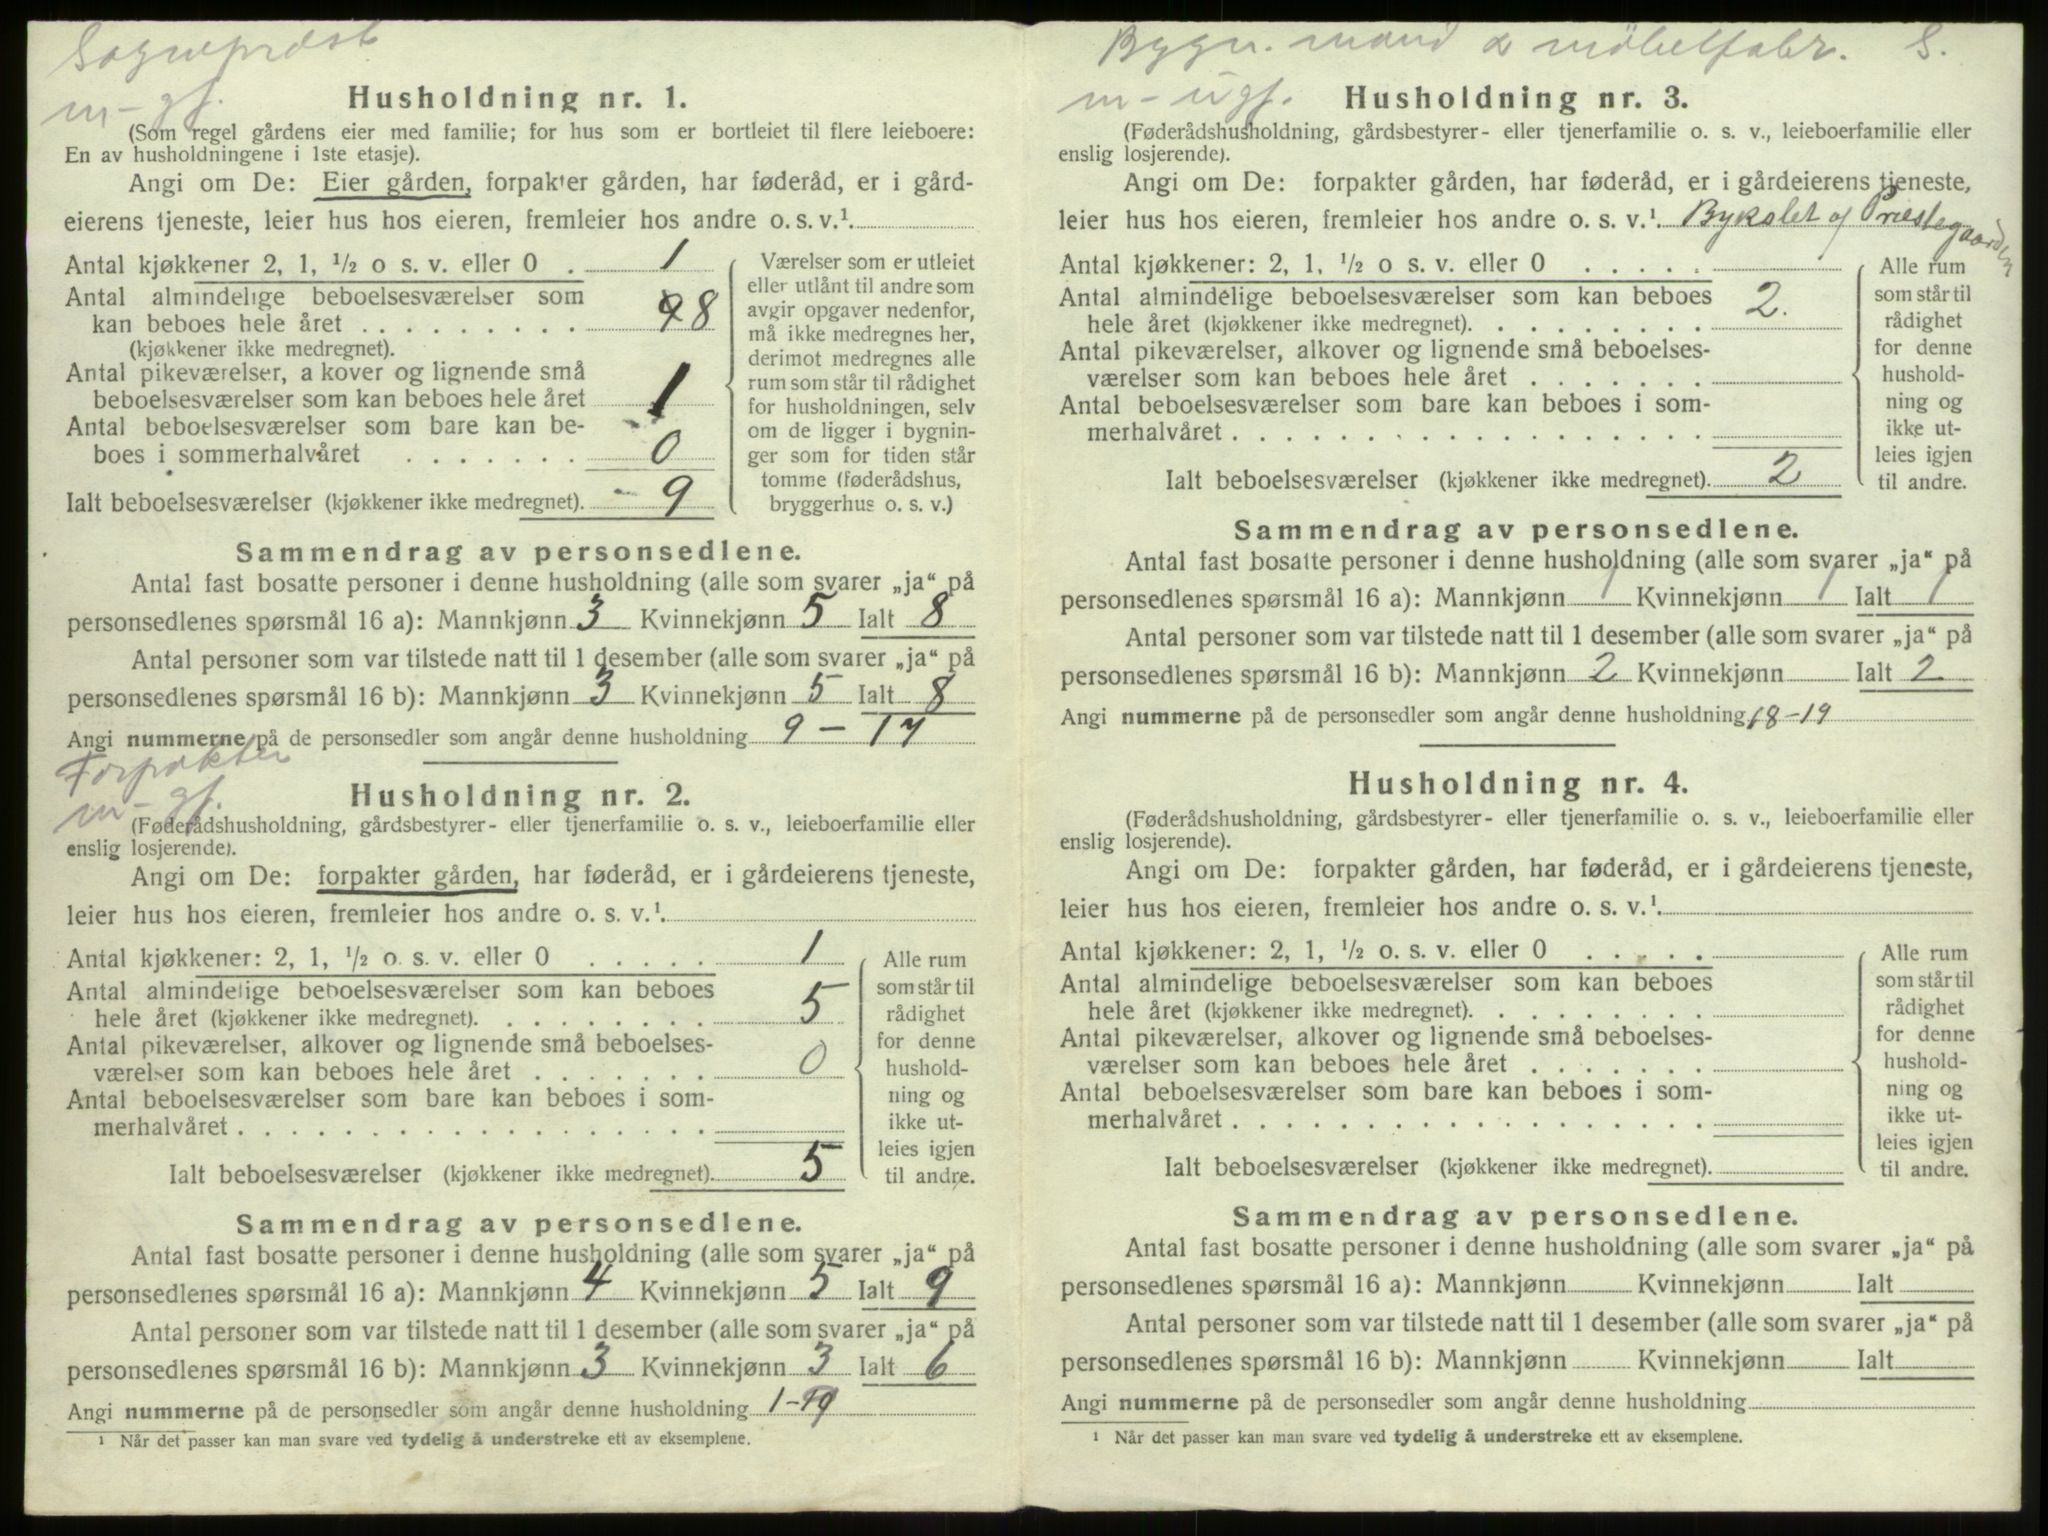 Sogneprest
m - gf.
Husholdning nr. 1.
(Som regel gårdens eier med familie; for hus som er bortleiet til flere leieboere:
En av husholdningene i 1ste etasje).
Angi om De: Eier gården, forpakter gården, har føderåd, er i gård-
eierens tjeneste, leier hus hos eieren, fremleier hos andre o. s. v.¹
Antal kjøkkener 2, 1, ½ o s. v. eller 0 . 1
Antal almindelige beboelsesværelser som
kan beboes hele året . . . . . . . . . 8
(kjøkkener ikke medregnet).
Antal pikeværelser, a kover og lignende små
beboelsesværelser som kan beboes hele året 1
Antal beboelsesværelser som bare kan be-
boes i sommerhalvåret . . . . . . . 0
Ialt beboelsesværelser (kjøkkener ikke medregnet). 9
Værelser som er utleiet
eller utlånt til andre som
avgir opgaver nedenfor,
må ikke medregnes her,
derimot medregnes alle
rum som står til rådighet
for husholdningen, selv
om de ligger i bygnin-
ger som for tiden står
tomme (føderådshus,
bryggerhus o. s. v.)
Sammendrag av personsedlene.
Antal fast bosatte personer i denne husholdning (alle som svarer „ja“ på
personsedlenes spørsmål 16 a): Mannkjønn 3 Kvinnekjønn 5 Ialt 8
Antal personer som var tilstede natt til 1 desember (alle som svarer „ja“ på
personsedlenes spørsmål 16 b): Mannkjønn 3 Kvinnekjønn 5 Ialt 8
Angi nummerne på de personsedler som angår denne husholdning 9 - 17
Forpakter
m - gf.
Husholdning nr. 2.
(Føderådshusholdning, gårdsbestyrer- eller tjenerfamilie o. s. v., leieboerfamilie eller
enslig losjerende).
Angi om De: forpakter gården, har føderåd, er i gårdeierens tjeneste,
leier hus hos eieren, fremleier hos andre o. s. v.¹
Antal kjøkkener: 2, 1, ½ o. s. v. eller 0 . . . . . 1
Antal almindelige beboelsesværelser som kan beboes
hele året (kjøkkener ikke medregnet). . . . . . . . . 5
Antal pikeværelser, alkover og lignende små beboelses-
værelser som kan beboes hele året . . . . . . . 0
Antal beboelsesværelser som bare kan beboes i som-
merhalvåret . . . . . . . . . . . . . . . . . .
Ialt beboelsesværelser (kjøkkener ikke medregnet). 5
Alle rum
som står til
rådighet
for denne
hushold-
ning og
ikke ut-
leies igjen
til andre.
Sammendrag av personsedlene.
Antal fast bosatte personer i denne husholdning (alle som svarer „ja“ på
personsedlenes spørsmål 16 a): Mannkjønn 4 Kvinnekjønn 5 Ialt 9
Antal personer som var tilstede natt til 1 desember (alle som svarer „ja“ på
personsedlenes spørsmål 16 b): Mannkjønn 3 Kvinnekjønn 3 Ialt 6
Angi nummerne på de personsedler som angår denne husholdning
¹ Når det passer kan man svare ved tydelig å understreke ett av eksemplene.
Bygn. mand & møbelfabr. S.
m - ugf.
Husholdning nr. 3.
(Føderådshusholdning, gårdsbestyrer- eller tjenerfamilie o. s. v., leieboerfamilie eller
enslig losjerende).
Angi om De: forpakter gården, har føderåd, er i gårdeierens tjeneste,
leier hus hos eieren, fremleier hos andre o. s. v.¹ Bykslet af Prestegaarden
Antal kjøkkener: 2, 1, ½ o s. v. eller 0 . . . . .
Antal almindelige beboelsesværelser som kan beboes
hele året (kjøkkener ikke medregnet). . . . . . . . . 2.
Antal pikeværelser, alkover og lignende små beboelses-
værelser som kan beboes hele året . . . . . . .
Antal beboelsesværelser som bare kan beboes i som-
merhalvåret . . . . . . . . . . . . . . . . . .
Ialt beboelsesværelser (kjøkkener ikke medregnet). 2
Alle rum
som står til
rådighet
for denne
hushold-
ning og
ikke ut-
leies igjen
til andre.
Sammendrag av personsedlene.
Antal fast bosatte personer i denne husholdning (alle som svarer „ja“ på
personsedlenes spørsmål 16 a): Mannkjønn 1 Kvinnekjønn 1 Ialt 1
Antal personer som var tilstede natt til 1 desember (alle som svarer „ja“ på
personsedlenes spørsmål 16 b): Mannkjønn 2 Kvinnekjønn Ialt 2
Angi nummerne på de personsedler som angår denne husholdning 18-19
Husholdning nr. 4.
(Føderådshusholdning, gårdsbestyrer- eller tjenerfamilie o. s. v., leieboerfamilie eller
enslig losjerende).
Angi om De: forpakter gården, har føderåd, er i gårdeierens tjeneste,
leier hus hos eieren, fremleier hos andre o. s. v.¹
Antal kjøkkener: 2, 1, ½ o. s. v. eller 0 . . . . .
Antal almindelige beboelsesværelser som kan beboes
hele året (kjøkkener ikke medregnet). . . . . . . . .
Antal pikeværelser, alkover og lignende små beboelses-
værelser som kan beboes hele året . . . . . . .
Antal beboelsesværelser som bare kan beboes i som-
merhalvåret . . . . . . . . . . . . . . . . . .
Ialt beboelsesværelser (kjøkkener ikke medregnet).
Alle rum
som står til
rådighet
for denne
hushold-
ning og
ikke ut-
leies igjen
til andre.
Sammendrag av personsedlene.
Antal fast bosatte personer i denne husholdning (alle som svarer „ja“ på
personsedlenes spørsmål 16 a): Mannkjønn Kvinnekjønn Ialt
Antal personer som var tilstede natt til 1 desember (alle som svarer „ja“ på
personsedlenes spørsmål 16 b): Mannkjønn Kvinnekjønn Ialt
Angi nummerne på de personsedler som angår denne husholdning
¹ Når det passer kan man svare ved tydelig å understreke ett av eksemplene.